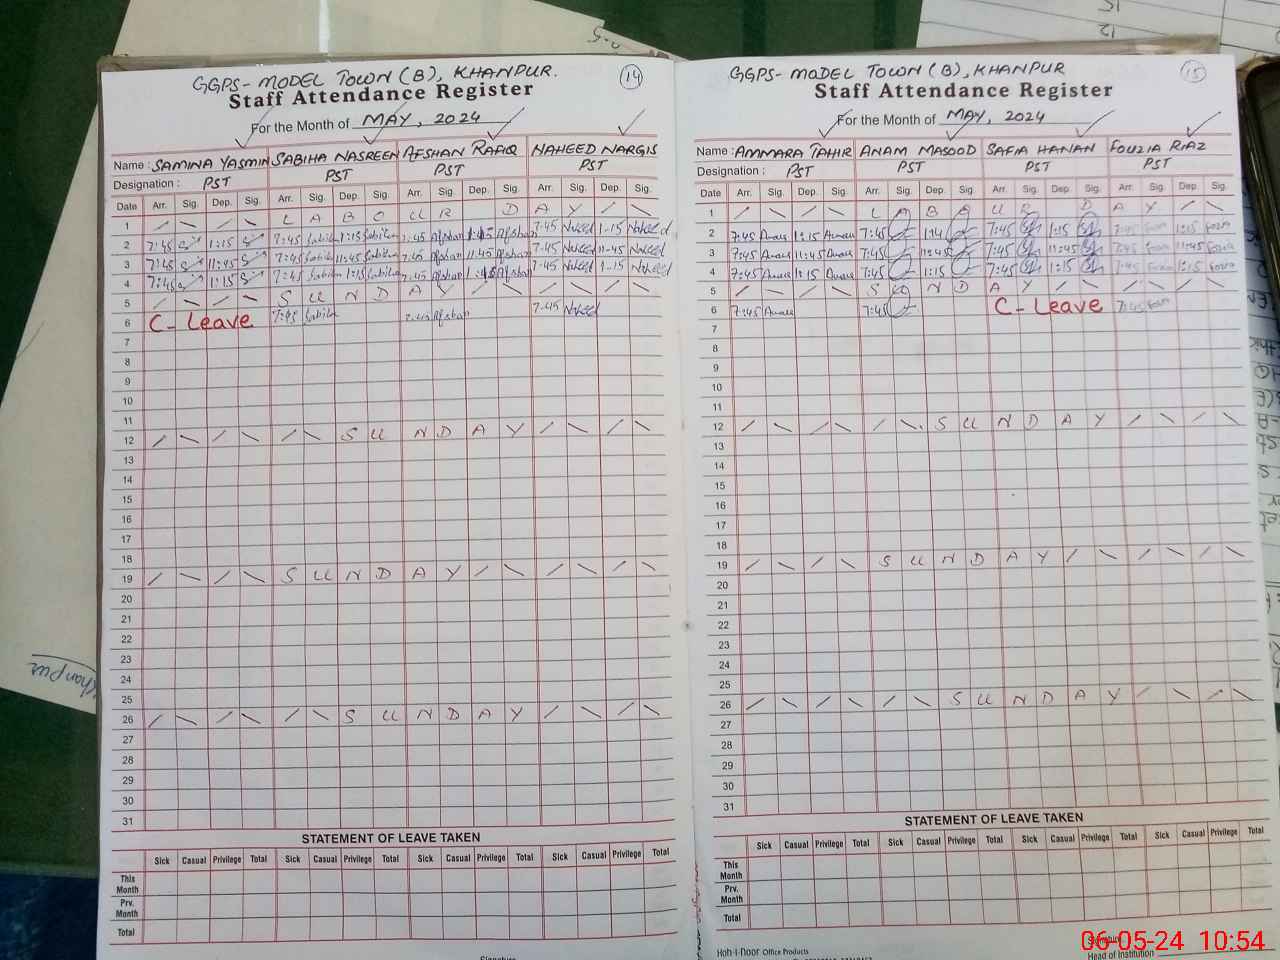 GGPS- MODEL TOWN (B), KHANPUR.
14
Staff Attendance Register
For the Month of MAY, 2024
Name : SAMINA YASMIN SABIHA NASREEN AFSHAN RAFIQ NAHEED NARGIS
Designation : PST PST PST PST
Date Arr. Sig. Dep. Sig. Arr. Sig. Dep. Sig. Arr. Sig. Dep. Sig. Arr. Sig. Dep. Sig.
1 L A B O U R D A Y
2 7:45 1:15 7:45 Sabiha 1:15 Sabiha 7:45 Afshan 1:15 Afshan 7:45 Naheed 1-15 Naheed
3 7:45 11:45 7:45 Sabiha 11:45 Sabiha 7:45 Afshan 11:45 Afshan 7-45 Naheed 11-45 Naheed
4 7:45 1:15 7:45 Sabiha 1:15 Sabiha 7:45 Afshan Afshan 7-45 Naheed 1-15 Naheed
5 S U N D A Y
6 C- Leave 7:45 Sabiha 7:45 Afshan 7-45 Naheed
7
8
9
10
11
12 S U N D A Y
13
14
15
16
17
18
19 S U N D A Y
20
21
22
23
24
25
26 S U N D A Y
27
28
29
30
31
STATEMENT OF LEAVE TAKEN
Sick Casual Privilege Total Sick Casual Privilege Total Sick Casual Privilege Total Sick Casual Privilege Total
This Month
Prv. Month
Total
GGPS- MODEL TOWN (B), KHANPUR
15
Staff Attendance Register
For the Month of MAY, 2024
Name : AMMARA TAHIR ANAM MASOOD SAFIA HANAN FOUZIA RIAZ
Designation : PST PST PST PST
Date Arr. Sig. Dep. Sig. Arr. Sig. Dep. Sig. Arr. Sig. Dep. Sig. Arr. Sig. Dep. Sig.
1 L A B O U R D A Y
2 7:45 1:15 7:45 1:14 7:45 1:15 7:45 1:15
3 7:45 11:45 7:45 11:45 7:45 11:45 7:45 11:45
4 7:45 1:15 7:45 1:15 7:45 1:15 7:45 1:15
5 S U N D A Y
6 7:45 7:45 C- Leave 7:45
7
8
9
10
11
12 S U N D A Y
13
14
15
16
17
18
19 S U N D A Y
20
21
22
23
24
25
26 S U N D A Y
27
28
29
30
31
STATEMENT OF LEAVE TAKEN
Sick Casual Privilege Total Sick Casual Privilege Total Sick Casual Privilege Total Sick Casual Privilege Total
This Month
Prv. Month
Total
Hoh-I-Noor Office Products
Head of Institution
06-05-24 10:54
Khanpur